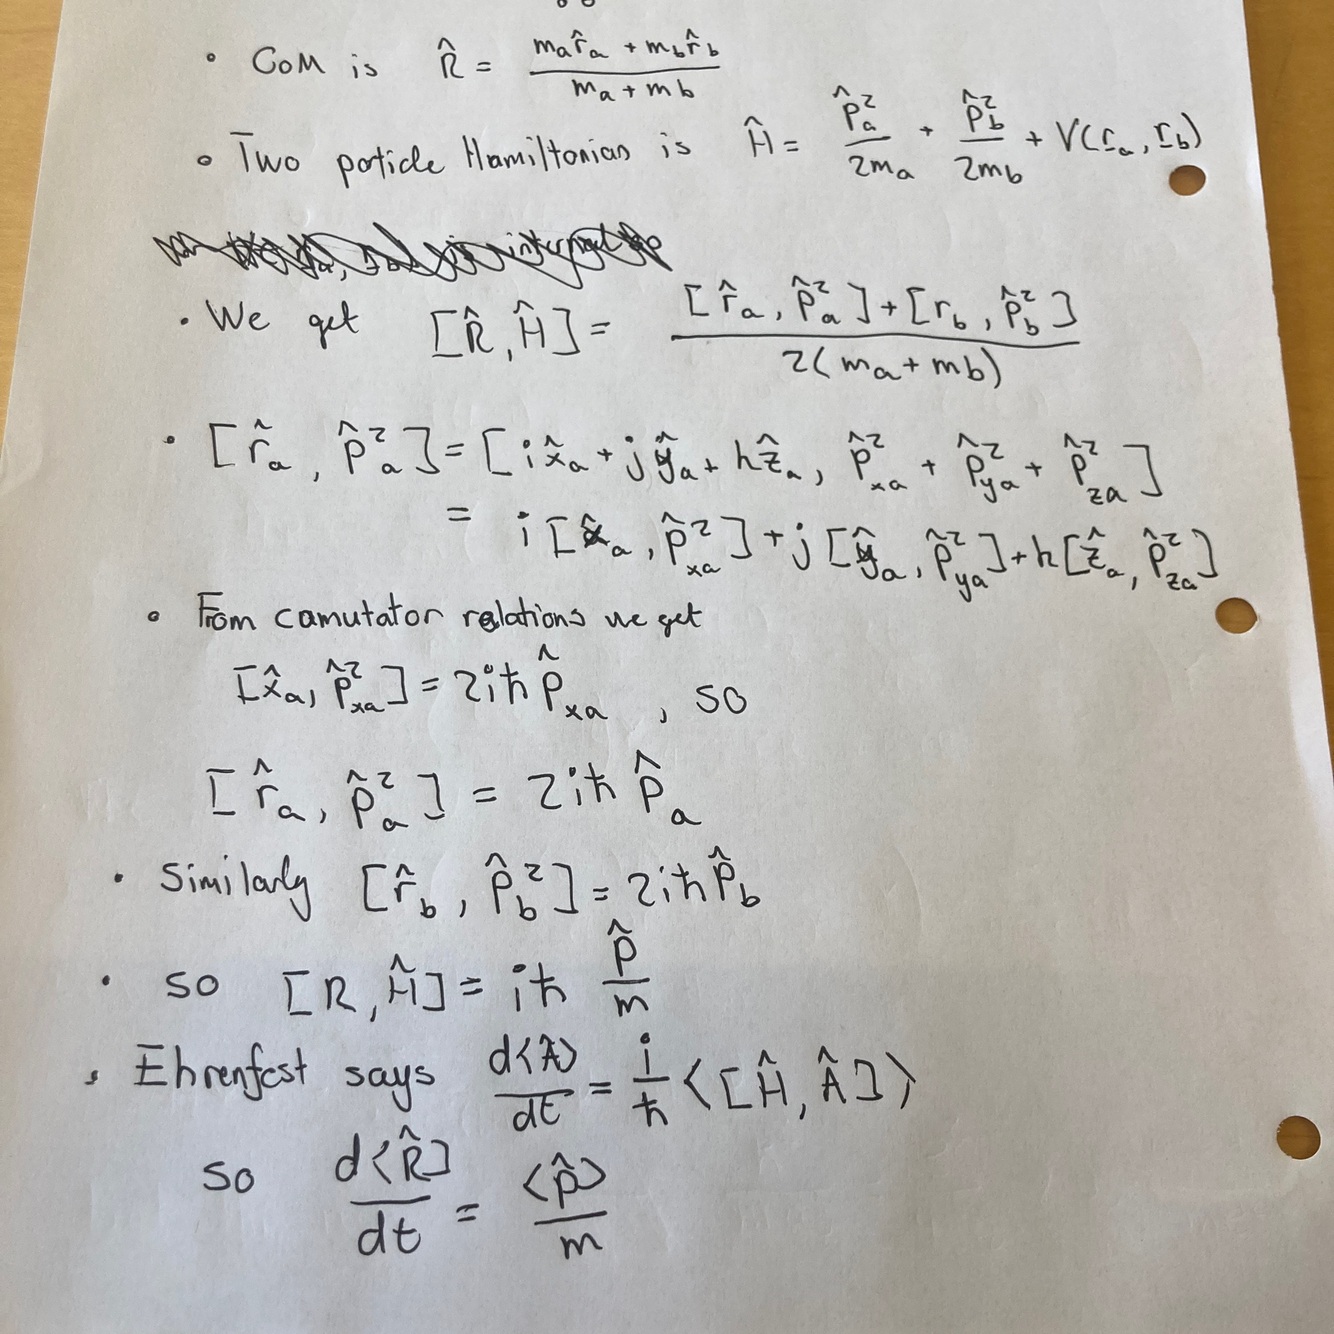 • CoM is R̂ = (mₐr̂ₐ + m_b r̂_b) / (mₐ + m_b)
• Two particle Hamiltonian is Ĥ = p̂ₐ²/2mₐ + p̂_b²/2m_b + V(r̲ₐ, r̲_b)
• We get [R̂, Ĥ] = ([r̂ₐ, p̂ₐ²] + [r_b, p̂_b²]) / 2(mₐ + m_b)
• [r̂ₐ, p̂ₐ²] = [i x̂ₐ + j ŷₐ + k ẑₐ, p̂ₓₐ² + p̂_ya² + p̂_za²]
= i [x̂ₐ, p̂ₓₐ²] + j [ŷₐ, p̂_ya²] + k [ẑₐ, p̂_za²]
• From camutator relations we get
[x̂ₐ, p̂ₓₐ²] = 2iħ p̂ₓₐ , so
[r̂ₐ, p̂ₐ²] = 2iħ p̂ₐ
• Similarly [r̂_b, p̂_b²] = 2iħ p̂_b
• so [R, Ĥ] = iħ P̂/m
• Ehrenfest says d⟨Â⟩/dt = i/ħ ⟨[Ĥ, Â]⟩
so d⟨R̂]/dt = ⟨p̂⟩/m